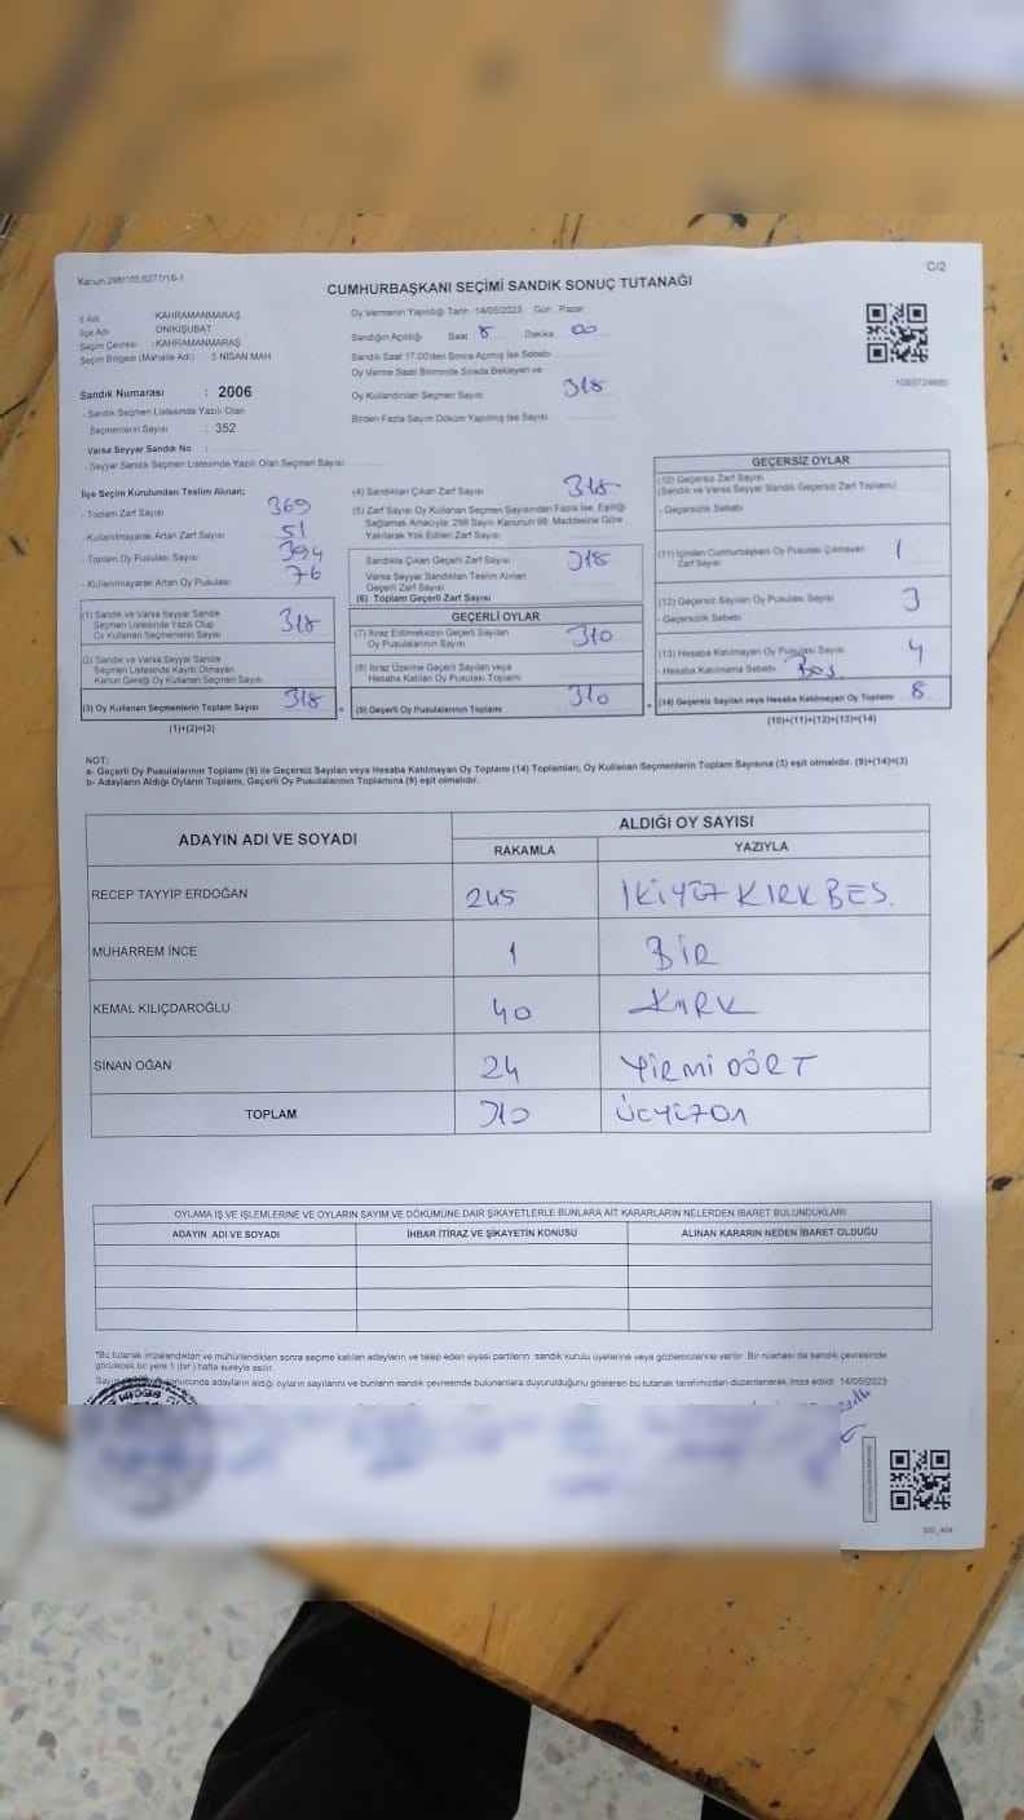 Kanun
C/2
CUMHURBAŞKANI SEÇİMİ SANDIK SONUÇ TUTANAĞI
Oy Vermenin Yapıldığı Tarih 14/05/2023 Gün Pazar
İl Adı KAHRAMANMARAŞ
İlçe Adı ONİKİŞUBAT
Seçim Çevresi : KAHRAMANMARAŞ
Seçim Bölgesi (Mahalle Adı) 5 NİSAN MAH
Sandığın Açıldığı Saat 8 Dakika 00
Sandık Saat 17.00'den Sonra Açılmış İse Sebebi
Oy Verme Saati Bitiminde Sırada Bekleyen ve
Oy Kullandırılan Seçmen Sayısı 318
Birden Fazla Sayım Döküm Yapılmış İse Sayısı
Sandık Numarası : 2006
- Sandık Seçmen Listesinde Yazılı Olan
Seçmenlerin Sayısı : 352
Varsa Seyyar Sandık No :
- Seyyar Sandık Seçmen Listesinde Yazılı Olan Seçmen Sayısı
İlçe Seçim Kurulundan Teslim Alınan;
- Toplam Zarf Sayısı 369
- Kullanılmayarak Artan Zarf Sayısı 51
- Toplam Oy Pusulası Sayısı 394
- Kullanılmayarak Artan Oy Pusulası 76
(1) Sandık ve Varsa Seyyar Sandık
Seçmen Listesinde Yazılı Olup
Oy Kullanan Seçmenlerin Sayısı 318
(2) Sandık ve Varsa Seyyar Sandık
Seçmen Listesinde Kayıtlı Olmayan
Kanun Gereği Oy Kullanan Seçmen Sayısı
(3) Oy Kullanan Seçmenlerin Toplam Sayısı 318
(1)+(2)=(3)
(4) Sandıktan Çıkan Zarf Sayısı 318
(5) Zarf Sayısı Oy Kullanan Seçmen Sayısından Fazla İse, Eşitliği
Sağlamak Amacıyla; 298 Sayılı Kanunun 98. Maddesine Göre
Yakılarak Yok Edilen Zarf Sayısı
Sandıkta Çıkan Geçerli Zarf Sayısı 318
Varsa Seyyar Sandıktan Teslim Alınan
Geçerli Zarf Sayısı
(6) Toplam Geçerli Zarf Sayısı
GEÇERLİ OYLAR
(7) İtiraz Edilmeksizin Geçerli Sayılan
Oy Pusulalarının Sayısı 310
(8) İtiraz Üzerine Geçerli Sayılan veya
Hesaba Katılan Oy Pusulası Toplamı
(9) Geçerli Oy Pusulalarının Toplamı 310
GEÇERSİZ OYLAR
(10) Geçersiz Zarf Sayısı
(Sandık ve Varsa Seyyar Sandık Geçersiz Zarf Toplamı)
- Geçersizlik Sebebi
(11) İçinden Cumhurbaşkanı Oy Pusulası Çıkmayan
Zarf Sayısı 1
(12) Geçersiz Sayılan Oy Pusulası Sayısı 3
- Geçersizlik Sebebi
(13) Hesaba Katılmayan Oy Pusulası Sayısı 4
Hesaba Katılmama Sebebi Boş
(14) Geçersiz Sayılan veya Hesaba Katılmayan Oy Toplamı 8
(10)+(11)+(12)+(13)=(14)
NOT:
a- Geçerli Oy Pusulalarının Toplamı (9) ile Geçersiz Sayılan veya Hesaba Katılmayan Oy Toplamı (14) Toplamları, Oy Kullanan Seçmenlerin Toplam Sayısına (3) eşit olmalıdır. (9)+(14)=(3)
b- Adayların Aldığı Oyların Toplamı, Geçerli Oy Pusulalarının Toplamına (9) eşit olmalıdır.
ADAYIN ADI VE SOYADI
ALDIĞI OY SAYISI
RAKAMLA YAZIYLA
RECEP TAYYİP ERDOĞAN 245 İKİYÜZ KIRK BEŞ.
MUHARREM İNCE 1 BİR
KEMAL KILIÇDAROĞLU 40 KIRK
SİNAN OĞAN 24 YİRMİ DÖRT
TOPLAM 310 ÜÇYÜZON
OYLAMA İŞ VE İŞLEMLERİNE VE OYLARIN SAYIM VE DÖKÜMÜNE DAİR ŞİKAYETLERLE BUNLARA AİT KARARLARIN NELERDEN İBARET BULUNDUKLARI
ADAYIN ADI VE SOYADI İHBAR İTİRAZ VE ŞİKAYETİN KONUSU ALINAN KARARIN NEDEN İBARET OLDUĞU
*Bu tutanak imzalandıktan ve mühürlendikten sonra seçime katılan adayların ve talep eden siyasi partilerin sandık kurulu üyelerine veya gözlemcilerine verilir. Bir nüshası da sandık çevresinde
görülecek bir yere 1 (bir) hafta süreyle asılır.
sonucunda adayların aldığı oyların sayılarını ve bunların sandık çevresinde bulunanlara duyurulduğunu gösteren bu tutanak tarafımızdan düzenlenerek imza edildi. 14/05/2023